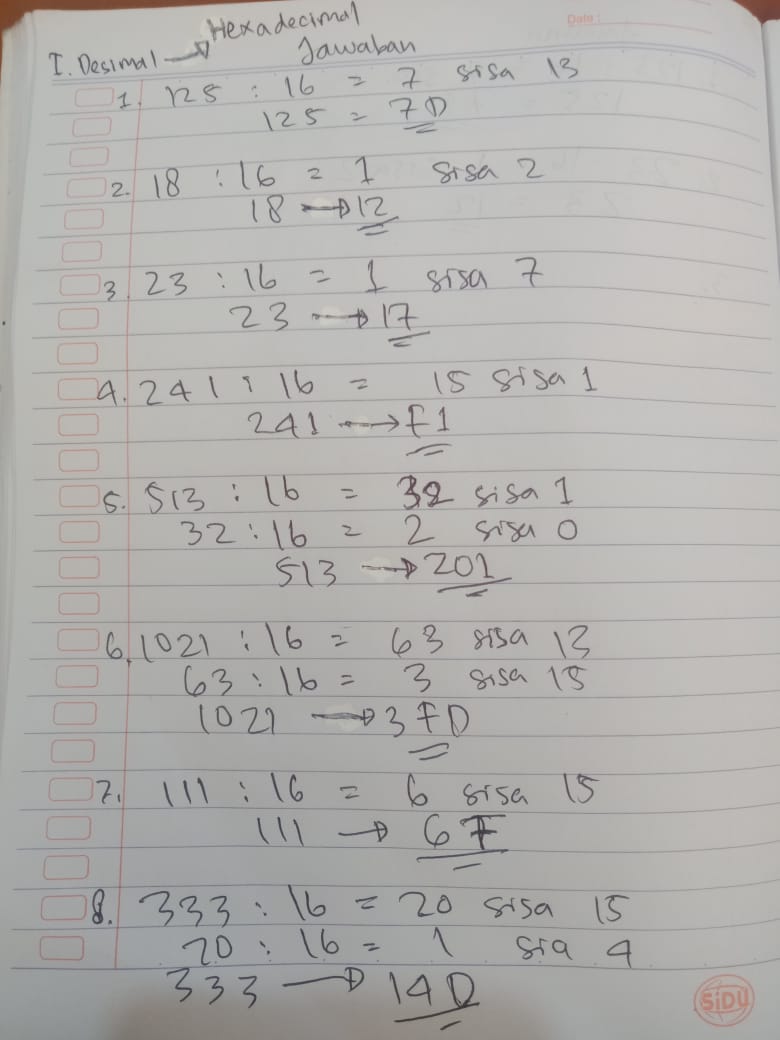 Hexadecimal
Date :
I. Desimal → Jawaban
1. 125 : 16 = 7 sisa 13
125 = 7D
2. 18 : 16 = 1 sisa 2
18 → 12
3. 23 : 16 = 1 sisa 7
23 → 17
4. 241 : 16 = 15 sisa 1
241 → F1
5. 513 : 16 = 32 sisa 1
32 : 16 = 2 sisa 0
513 → 201
6. 1021 : 16 = 63 sisa 13
63 : 16 = 3 sisa 15
1021 → 3FD
7. 111 : 16 = 6 sisa 15
111 → 6F
8. 333 : 16 = 20 sisa 15
20 : 16 = 1 sia 4
333 → 14D
SiDU